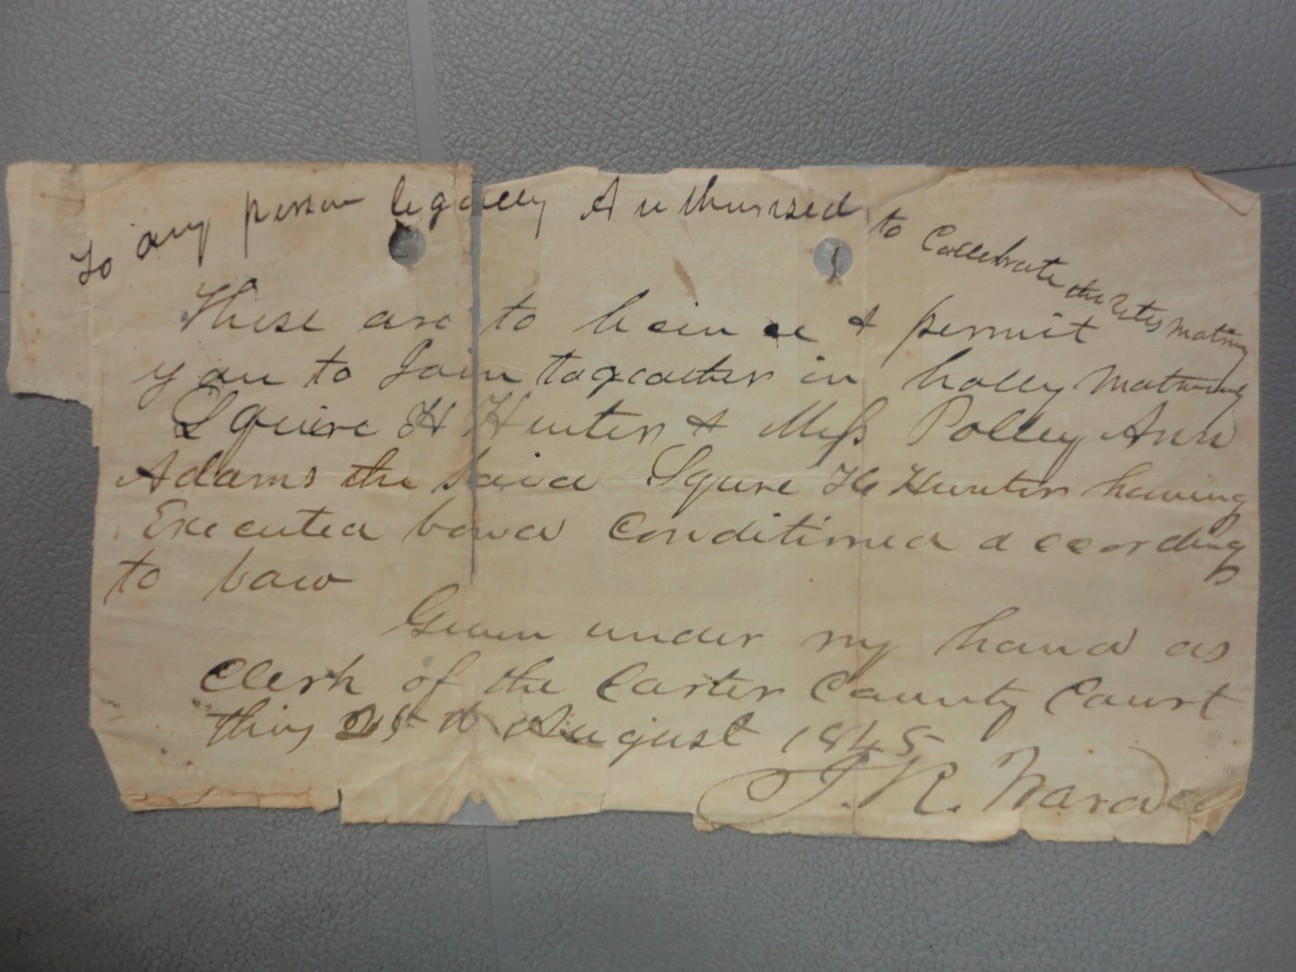 To any person legally Authurized to Cellebrate the Rites Matrimy
These are to licince & permit
you to Join togeather in holly Matrimony
Squire H Hunter & Miss Polley Ann
Adams the said Squire H Hunter having
Executed bond Conditioned according
to law
Given under my hand as
Clerk of the Carter County Court
this August 1845
J. R. Ward